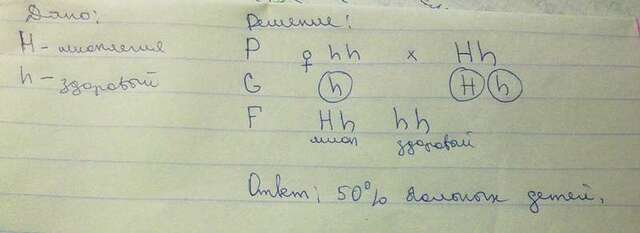 Дано:
Решение:
H - миопления
h - здоровый
P ♀ hh x Hh
G h H h
F Hh hh
миоп здоровый
Ответ: 50% больных детей.